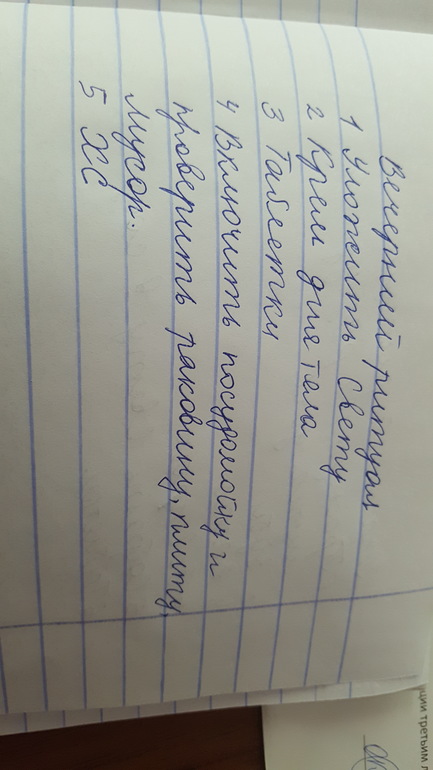 Вечерний ритуал
1 Уложить Свету
2 Крем для тела
3 Таблетки
4 Включить посудомойку и
проверить раковину, плиту,
мусор.
5 ХС
ции третьим л